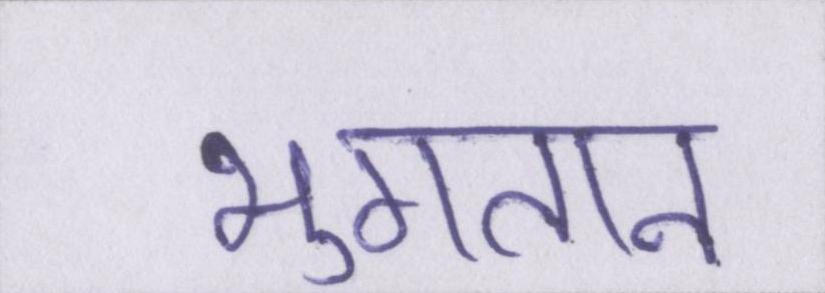 भुगतान